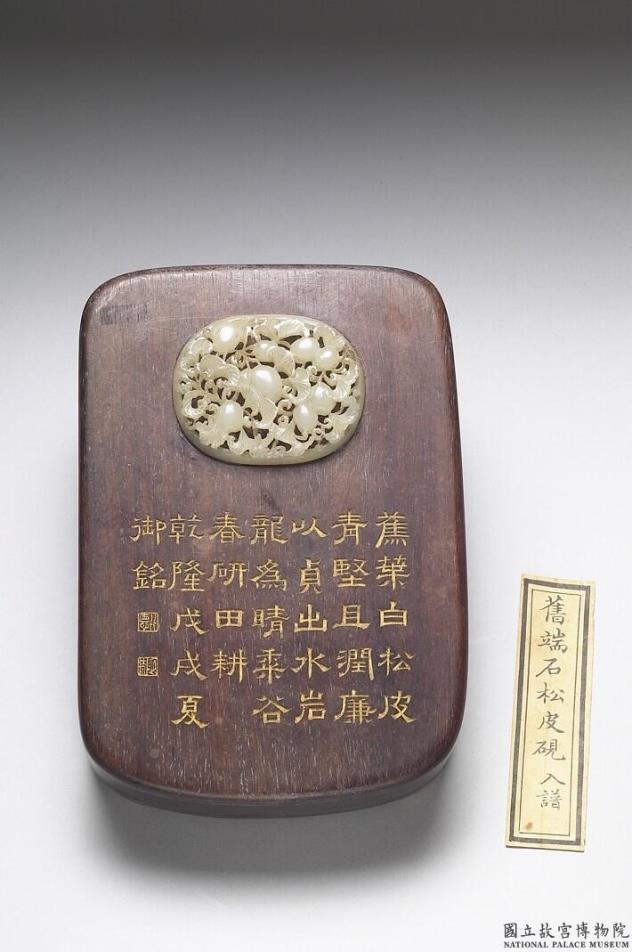 蕉葉白松皮
青堅且潤廉
以貞出水岩
龍為晴乘谷
春研田耕
乾隆戊戌夏
御銘
舊端石松皮硯入譜
國立故宮博物院
NATIONAL PALACE MUSEUM